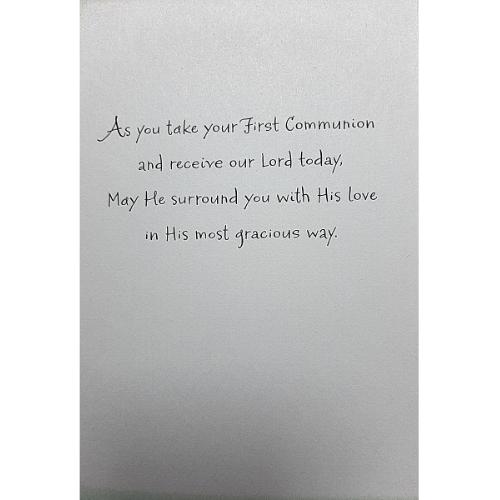 As you take your First Communion
and receive our Lord today,
May He surround you with His love
in His most gracious way.